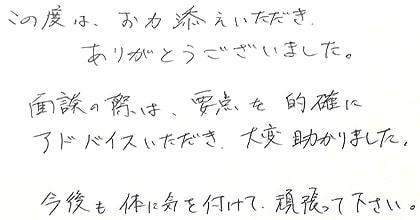 この度は、お力添えいただき、
ありがとうございました。
面談の際は、要点を的確に
アドバイスいただき、大変助かりました。
今後も体に気を付けて、頑張って下さい。